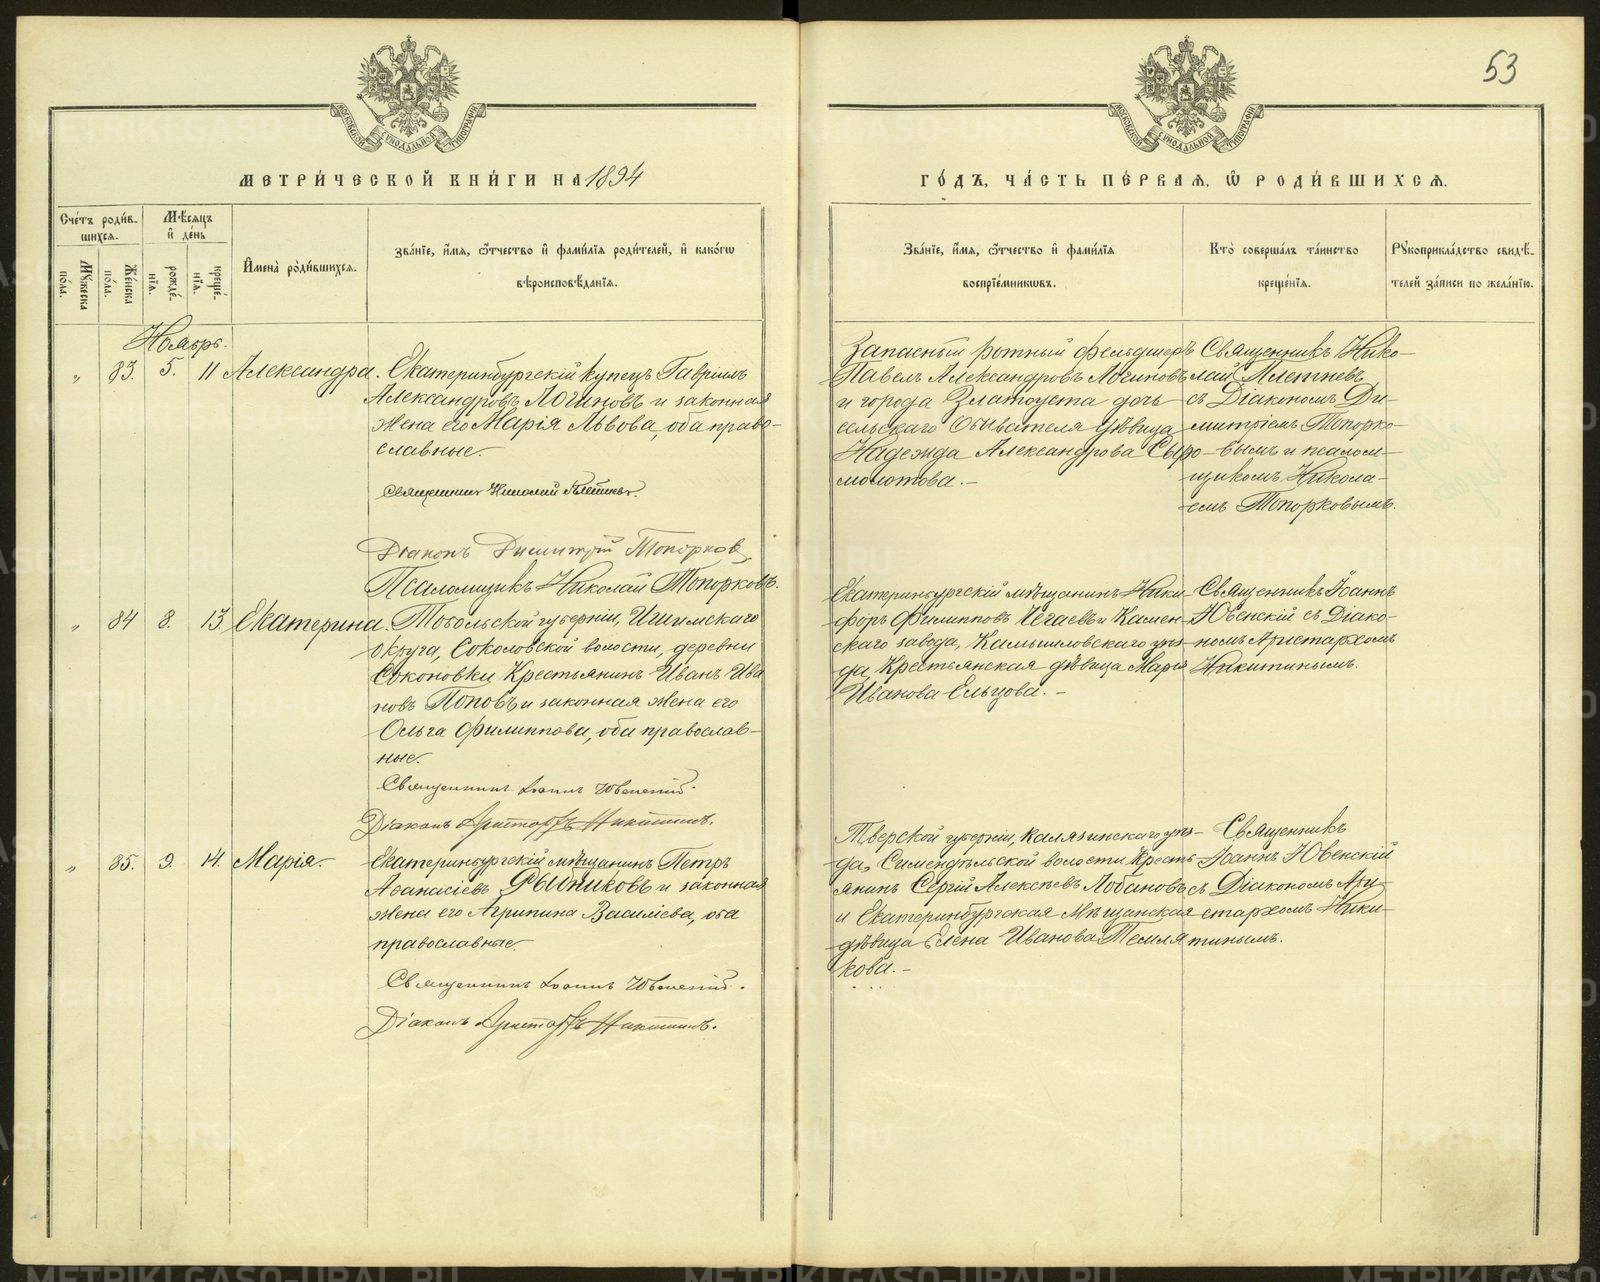 53
МОСКОВСКОЙ СѴНОДАЛЬНОЙ ТИПОГРАФІИ
МОСКОВСКОЙ СѴНОДАЛЬНОЙ ТИПОГРАФІИ
МЕТРИ́ЧЕСКОЙ КНИ́ГИ НА 1894
ГО́ДЪ, ЧА́СТЬ ПЕ́РВАЯ, Ѿ РОДИ́ВШИХСЯ.
Сче́тъ роди́в-
шихся.
Му́жеска
по́ла.
Же́нска
по́ла.
Мѣ́сяцъ
и де́нь
рожде́-
нія.
креще́-
нія.
Имена̀ роди́вшихся.
Зва́ніе, и́мя, ѻ́тчество и фами́лія роди́телей, и како́гѡ
вѣроисповѣ́данія.
Зва́ніе, и́мя, ѻ́тчество и фами́лія
воспріе́мниковъ.
Кто̀ соверша́лъ та́инство
креще́нія.
Рукоприкла́дство свидѣ́-
телей за́писи по жела́нію.
Ноябрь.
" 83. 5. 11 Александра.
Екатеринбургскій купецъ Гавріилъ
Александровъ Логиновъ и законная
жена его Марія Львова, оба право-
славные.
Священникъ Николай Плетневъ.
Діаконъ Димитрій Топорковъ
Псаломщикъ Николай Топорковъ.
Запасный ротный фельдшеръ
Павелъ Александровъ Логиновъ
и города Златоуста дочь
сельскаго Обывателя дѣвица
Надежда Александрова Сыро-
молотова. –
Священникъ Нико-
лай Плетневъ
съ Діакономъ Ди-
митріемъ Топорко-
вымъ и псалом-
щикомъ Никола-
емъ Топорковымъ.
" 84 8. 13. Екатерина.
Тобольской губерніи, Ишимскаго
округа, Соколовской волости, деревни
Соконовки Крестьянинъ Иванъ Ива
новъ Поповъ и законная жена его
Ольга Филиппова, оба православ-
ные.
Священникъ Іоаннъ Ювенскій.
Діаконъ Аристархъ Никитинъ.
Екатеринбургскій мѣщанинъ Ники-
форъ Филипповъ Чегаевъ и Камен-
скаго завода, Камышловскаго уѣз-
да, Крестьянская дѣвица Марія
Иванова Ельцова. –
Священникъ Іоаннъ
Ювенскій съ Діако-
номъ Аристархомъ
Никитинымъ.
" 85. 9. 14. Марія.
Екатеринбургскій мѣщанинъ Петръ
Аѳанасіевъ Рыпниковъ и законная
жена его Агрипина Василіева, оба
православные.
Священникъ Іоаннъ Ювенскій.
Діаконъ Аристархъ Никитинъ.
Тверской губерніи, Калязинскаго уѣз-
да, волости Кресть-
янинъ Сергій Алексѣевъ Лобановъ
и Екатеринбургская Мѣщанская
дѣвица Елена Иванова Темля
кова. –
Священникъ
Іоаннъ Ювенскій
съ Діакономъ Ари-
стархомъ Ники-
тинымъ.
METRIKI.GASO-URAL.RU